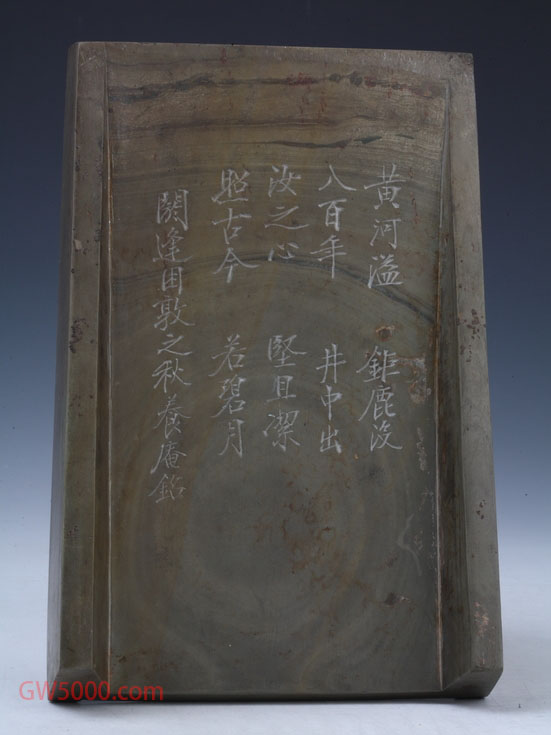 黃河溢 鉅鹿没
八百年 井中出
汝之心 堅且潔
照古今 若碧月
閼逢困敦之秋養庵銘
GW5000.com